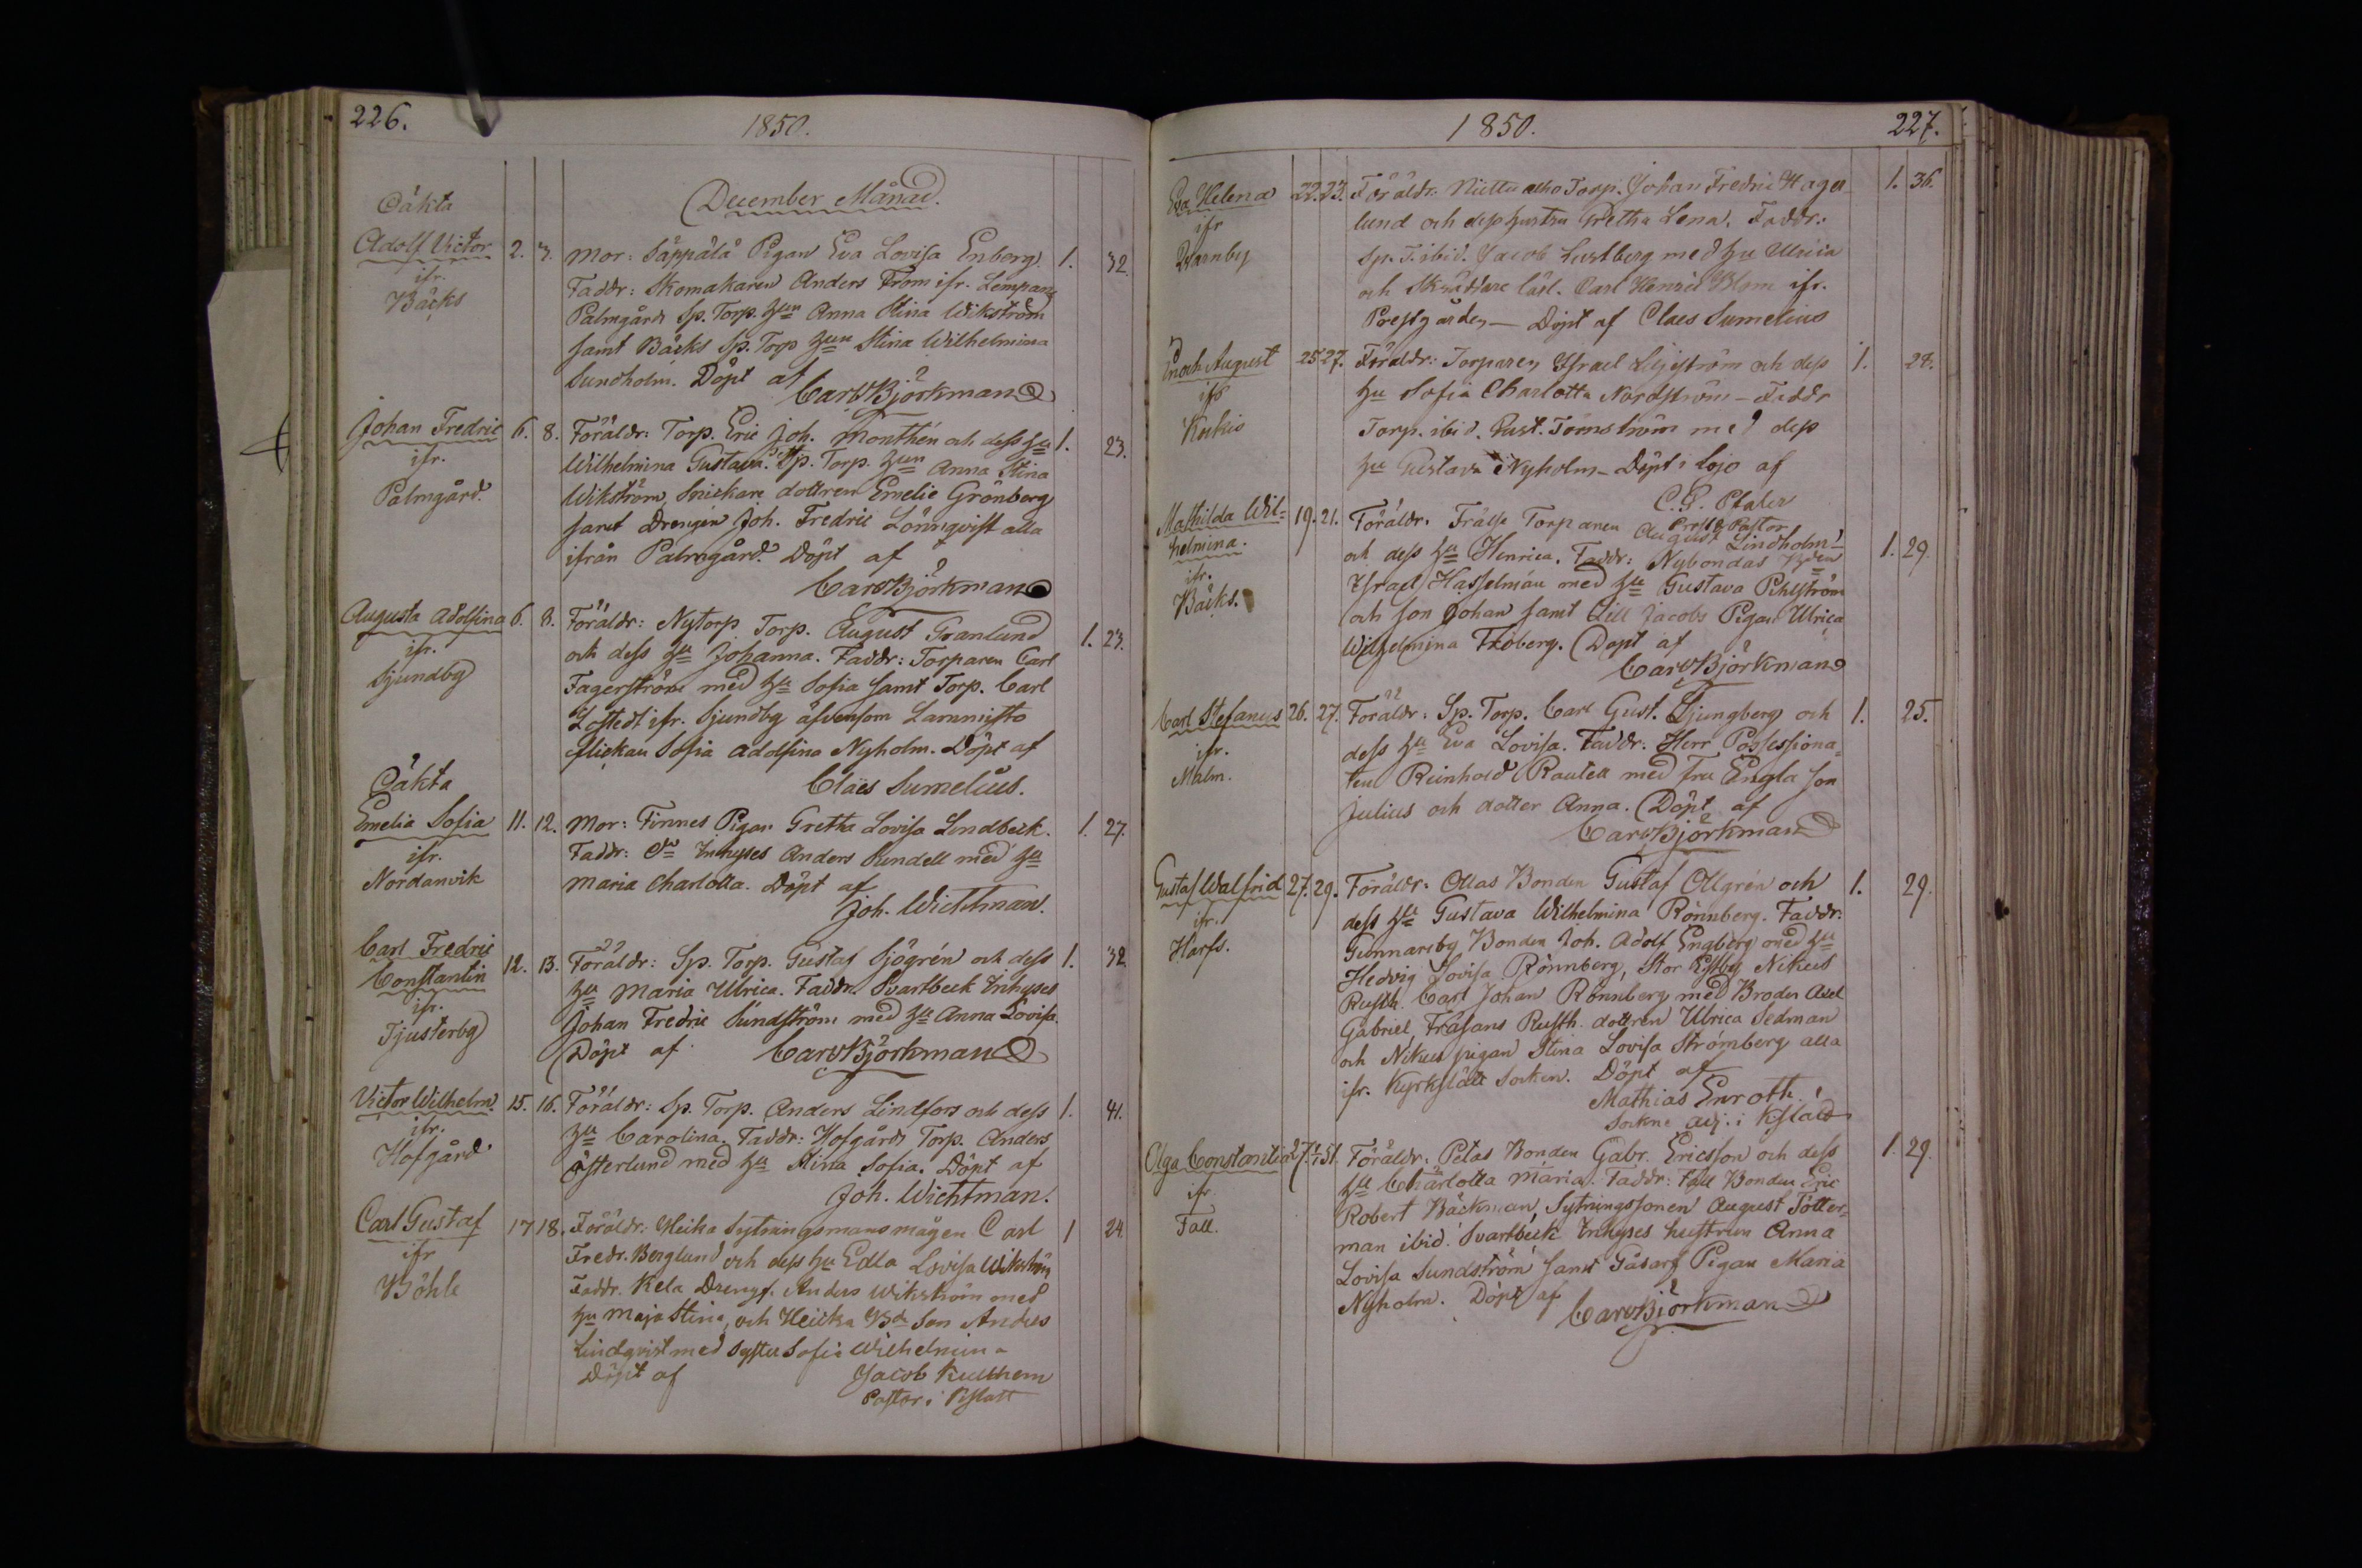 226.
1850.
December Månad.
Oäkta
Adolf Victor 2. 3. Mor: Säppälä Pigan Eva Lovisa Enberg. 1. 32
ifr.
Bäcks
Faddr: Skomakaren Anders From ifr. Lempans
Palmgårds Sp. Torp. hun Anna Stina Wikström
samt Bäcks Sp. Torp hun Stina Wilhelmina
Sundholm. Döpt af
Carl Björkman
Johan Fredric 6. 8. Föräldr: Torp. Eric Joh. Monthén och dess hu 1. 23.
ifr.
Palmgård.
Wilhelmina Gustava. Sp. Torp. hun Anna Stina
Wikström, Snickare dottren Emelie Grönberg
samt Drengen Joh. Fredric Lönnqvist alla
ifrån Palmgård. Döpt af
Carl Björkman
Augusta Adolfina 6. 8. Föräldr: Nytorp Torp. August Granlund 1. 23.
ifr.
Sjundby
och dess hu Johanna. Faddr: Torparen Carl
Fagerström med hu Sofia samt Torp. Carl
Löfstedt ifr. Sjundby äfvensom Lammitto
flickan Sofia Adolfina Nyholm. Döpt af
Claës Sumelius.
Oäkta
Emelia Sofia 11. 12. Mor: Finnes Pigan Gretha Lovisa Lindbeck. 1. 27.
ifr.
Nordanvik
Faddr: Inhyses Anders Rundell med hu
Maria Charlotta. Döpt af
Joh. Wichtman.
Carl Fredric
Constantin 12. 13. Föräldr: Sp. Torp. Gustaf Sjögrén och dess 1. 32
ifr.
Tjusterby
hu Maria Ulrica. Faddr. Svartbeck Inhyses
Johan Fredric Sundström med hu Anna Lovisa.
Döpt af Carl Björkman
Victor Wilhelm. 15. 16. Föräldr: Sp. Torp. Anders Lindfors och dess 1. 41.
ifr.
Hofgård.
hu Carolina. Faddr: Hofgårds Torp. Anders
Österlund med hu Stina Sofia. Döpt af
Joh. Wichtman.
Carl Gustaf 17 18. Föräldr: Heika Sytningsmans mågen Carl 1 24
ifr
Böhle
Fredr. Berglund och dess hu Edla Lovisa Wikström
Faddr. Kela Drengf. Anders Wikström med
hu Maja Stina, och Heicka Bde Son Anders
Lindqvist med Syster Sofia Wilhelmina
Döpt af Jacob Kullhem
Pastor i Kslatt
1850.
227.
Eva Helena 22. 23. Föräldr: Torp. Johan Fredric Hager- 1. 36.
ifr
lund och dess hustru Gretha Lena. Faddr:
Sp. T. ibid. Jacob Lustberg med hu Ulrica
och Skräddare lärl. Carl Henric Blom ifr.
Prestgården — Döpt af Claes Sumelius
Enoch August 25 27. Föräldr: Torparen Israel Liljeström och dess 1. 24.
ifr
Kockis
hu Sofia Charlotta Nordström — Faddr
Torp. ibid. Gust. Törnström med dess
hu Gustava Nyholm — Döpt i Lojo af
C. G.
Prost & Pastor
Mathilda Wil= 19. 21. Föräldr. Frälse Torparen August Lindholm
helmina.
ifr.
Bäcks.
och dess hu Henrica. Faddr: Nybondas 1. 29.
Israel Hasselman med hu Gustava Pihlström
och son Johan samt Lill Jacobs Pigan Ulrica
Wilhelmina Froberg. Döpt af
Carl Björkman
Carl Stefanus 26. 27. Föräldr: Sp. Torp. Carl Gust. Ljungberg och 1. 25.
ifr.
Malm.
dess hu Eva Lovisa. Faddr: Herr Possessiona=
ten Reinhold Rautell med fru Engla son
Julius och dotter Anna. Döpt af
Carl Björkman
Gustaf Walfrid 27. 29. Föräldr: Ollas Bonden Gustaf Ollgrén och 1. 29.
ifr.
Harfs.
dess hu Gustava Wilhelmina Rönnberg. Faddr:
Gunnarsby Bonden Joh. Adolf Engberg med hu
Hedvig Lovisa Rönnberg, Stor Estby Nikus
Rusth. Carl Johan Rönnberg med Broder Axel
Gabriel, Fräsans Rusth. dottren Ulrica Sedman
och Nikus pigan Stina Lovisa Strömberg alla
ifr. Kyrkslätt Socken. Döpt af
Mathias Enroth.
Sockne adj. i Kslätt
Olga Constantia 27. 1/1 51. Föräldr: Petas Bonden Gabr. Ericsson och dess 1. 29.
ifr
Fall.
hu Charlotta Maria. Faddr: Fall Bonden Eric
Robert Bäckman, Sytningssonen August Tötter=
man ibid. Svartbeck Inhyses hustrun Anna
Lovisa Sundström samt Gåsarf Pigan Maria
Nyholm. Döpt af
Carl Björkman